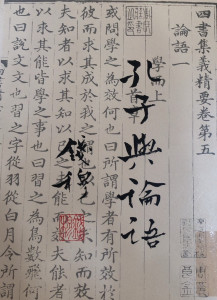 四書集義精要卷第五
論語一
學而上
孔子與論語
錢穆
或問學之為效何也曰所謂學者有所效於
彼而求其成於我之謂也以己之未知而效
夫知者以求其知以己之未能而效夫能者
以求其能皆學之事也曰習之為鳥數飛何
也曰說文文也習之字從羽從白月令所謂